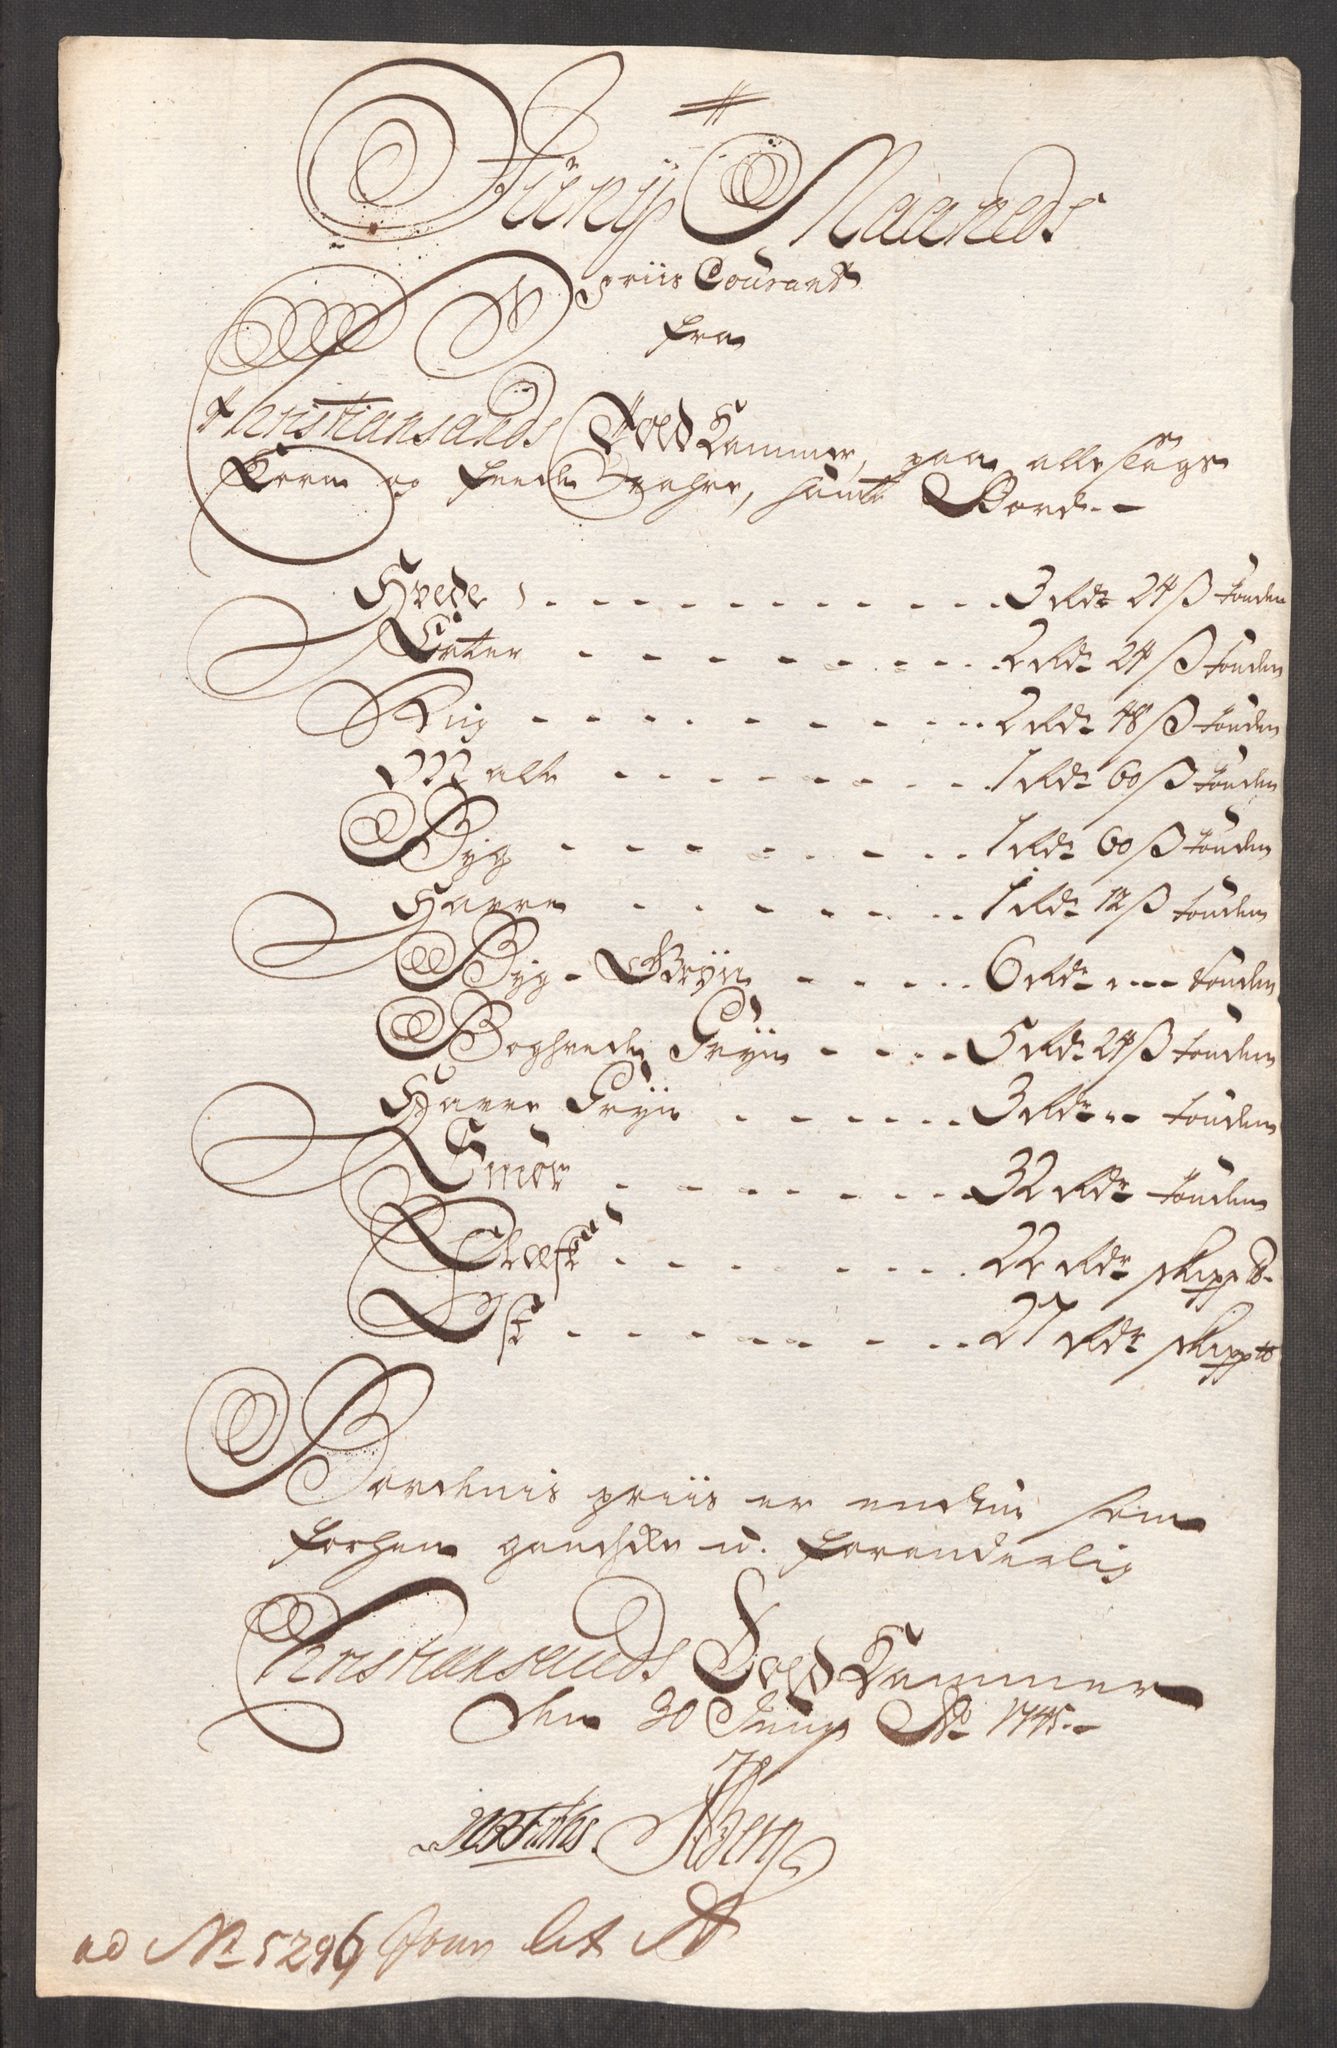 Juny Maaneds
Priis Courant
fra
Christiansands Told Kammer, paa alle slags
Korn og feede Wahre, samt Bord.
Hvede 3 Rdr 24 ß tønden
Erter 2 Rdr 24 ß tønden
Rug 2 Rdr 48 ß tønden
Malt 1 Rdr 60 ß tønden
Byg 1 Rdr 60 ß tønden
Havre 1 Rdr 12 ß tønden
Byg-Gryn 6 Rdr tønden
Boghvede Gryn 5 Rdr 24 ß tønden
Havre Gryn 3 Rdr tønden
Smør 32 Rdr tønden
22 Rdr skipp℔
27 Rdr skipp℔
Bordenis priis er endnu som
forhen gandske u-foranderlig
Christiansands Told Kammer
den 30 Juny Ao 1745.
Berg
ad No 5296 Jour Lit A